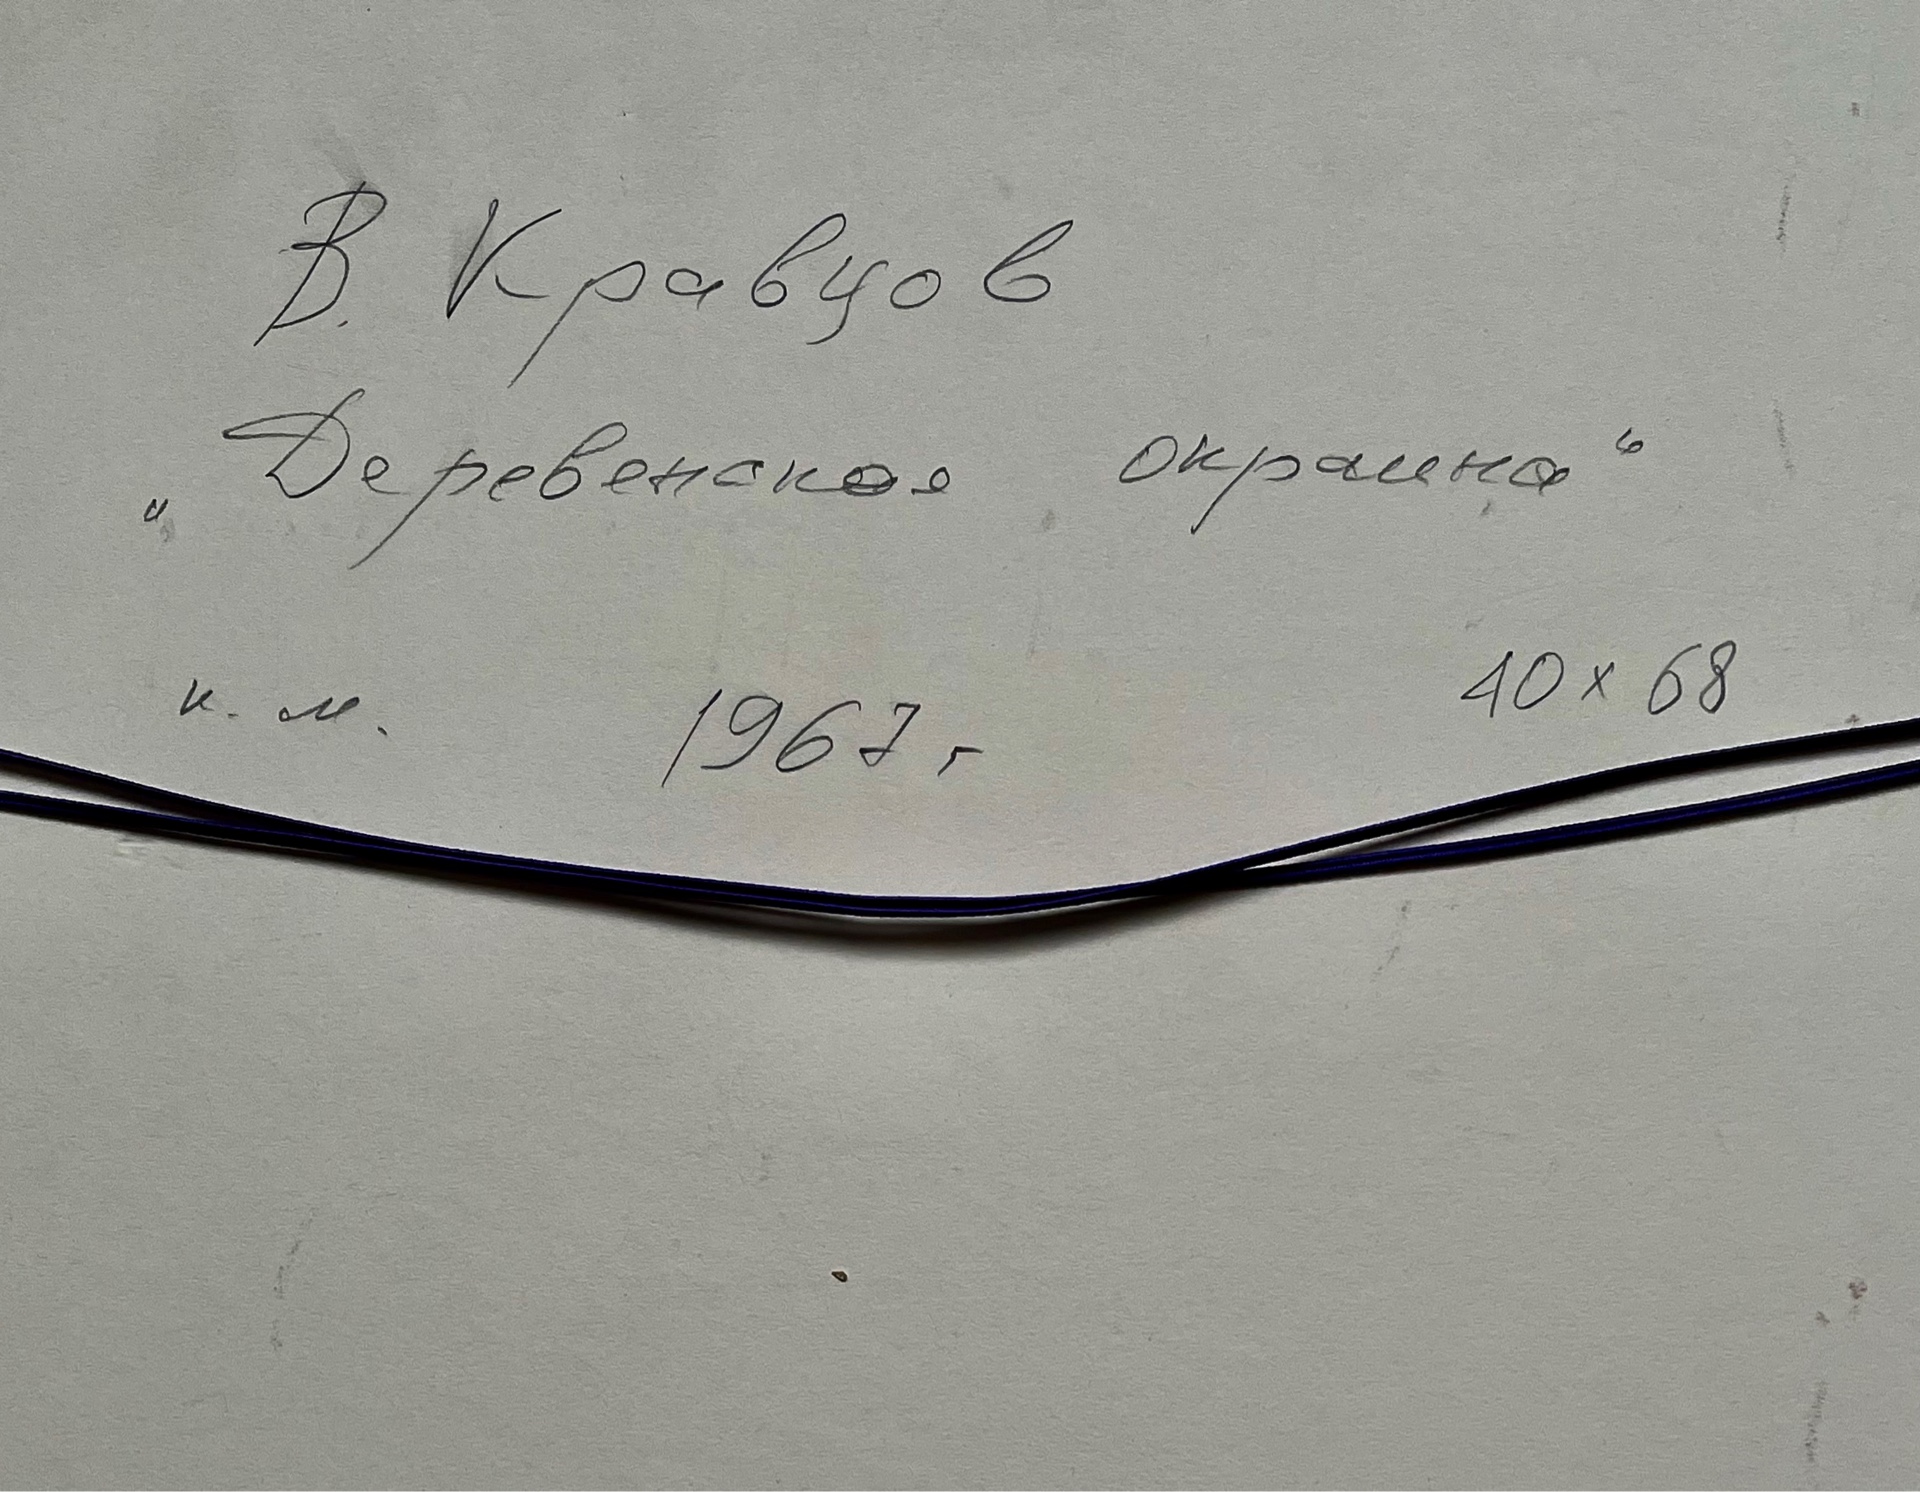 В. Кравцов
„Деревенская окраина“
к. м. 1967 г 40 х 68